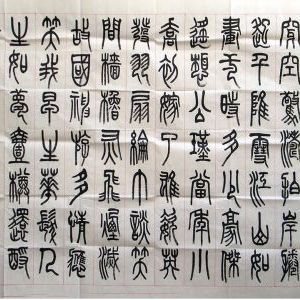 穿空驚濤拍岸捲
起千堆雪江山如
畫弌時多少豪傑
遙想公瑾當年小
喬初嫁了雄姿英
發羽扇綸巾談笑
間檣櫓灰飛煙滅
故國神遊多情應
笑我早生華髮人
生如夢壹樽還酹